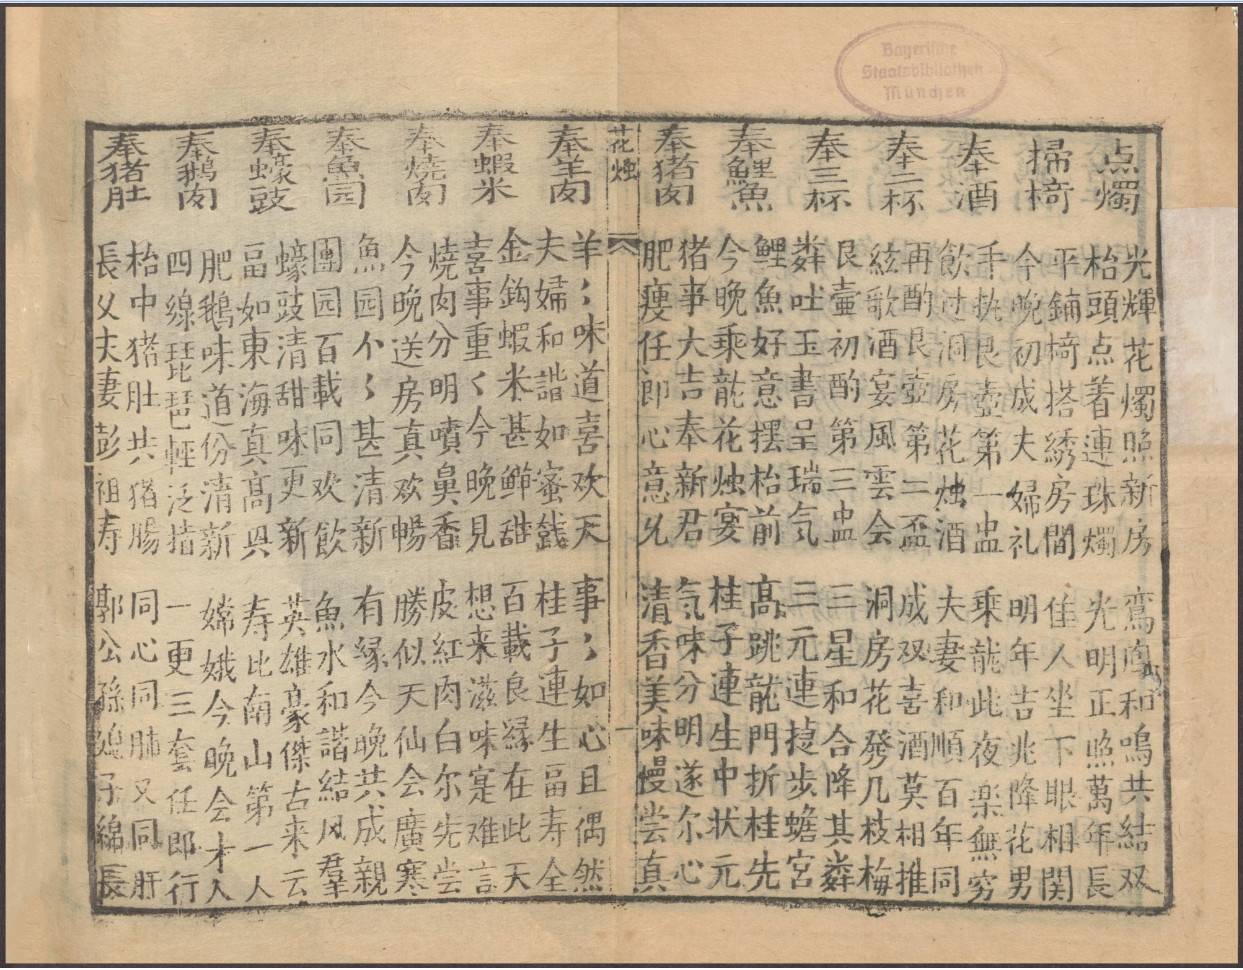 点燭
光輝花燭照新房 鸞凰和鳴共結双
枱頭点着連珠燭 光明正照萬年長
掃椅
平鋪椅搭綉房間 佳人坐下眼相関
今晚初成夫婦礼 明年吉兆降花男
奉酒
手执艮壺第一盅 乘龍此夜楽無穷
飲过洞房花烛酒 夫妻和順百年同
奉二杯
再酌艮壺第二盃 成双喜酒莫相推
絃歌酒宴風雲会 洞房花發几枝梅
奉三杯
艮壺初酌第三盅 三星和合降其粦
粦吐玉書呈瑞气 三元連步蟾宮
奉鯉魚
鯉魚好意摆枱前 髙跳龍門折桂先
今晚乘龍花烛宴 桂子連生中状元
奉猪肉
猪事大吉奉新君 気味分明遂尔心
肥瘦任郎心意 清香美味慢尝真
花烛
一
奉羊肉
羊〻味道喜欢天 事〻如心且偶然
夫婦和諧如蜜餞 桂子連生畐寿全
奉蝦米
金鈎蝦米甚鮮甜 百載良縁在此天
喜事重〻今晚見 想来滋味寔难言
奉燒肉
燒肉分明噴鼻香 皮紅肉白尔先尝
今晚送房真欢暢 勝似天仙会廣寒
奉魚园
魚园个〻甚清新 有縁今晚共成親
團园百載同欢飲 魚水和諧結凤羣
奉蠔豉
蠔豉清甜味更新 英雄豪傑古来云
畐如東海真髙 寿比南山第一人
奉鵝肉
肥鵝味道份清新 嫦娥今晚会才人
四線琵琶輕泛 一更三套任郎行
奉猪肚
枱中猪肚共猪腸 同心同肺又同肝
長久夫妻彭祖寿 郭公孫子綿長
Bayerische
Staatsbibliothek
München